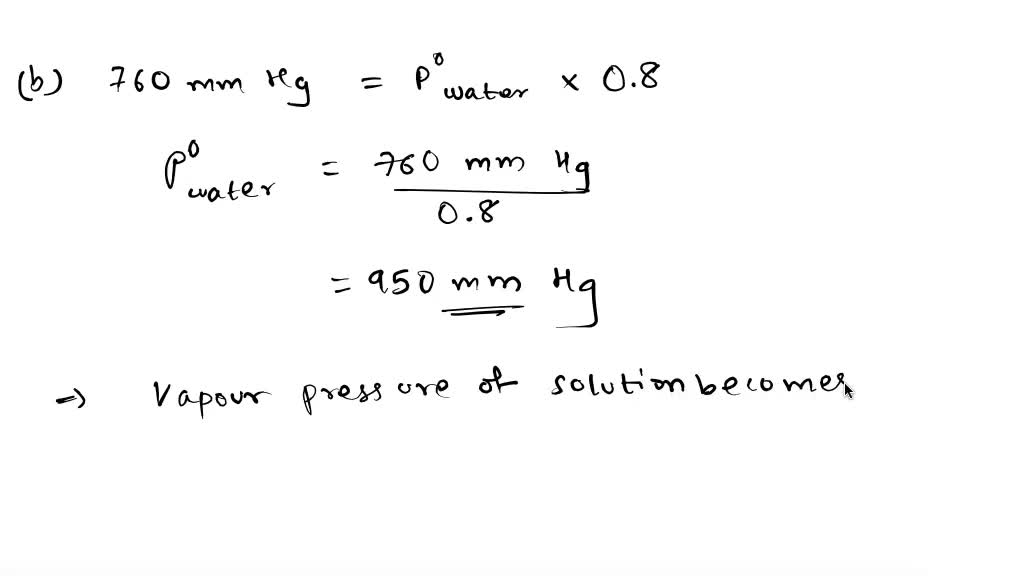 (b) 760 mm Hg = P⁰water × 0.8
P⁰water = 760 mm Hg
0.8
= 950 mm Hg
→ Vapour pressure of solution becomes